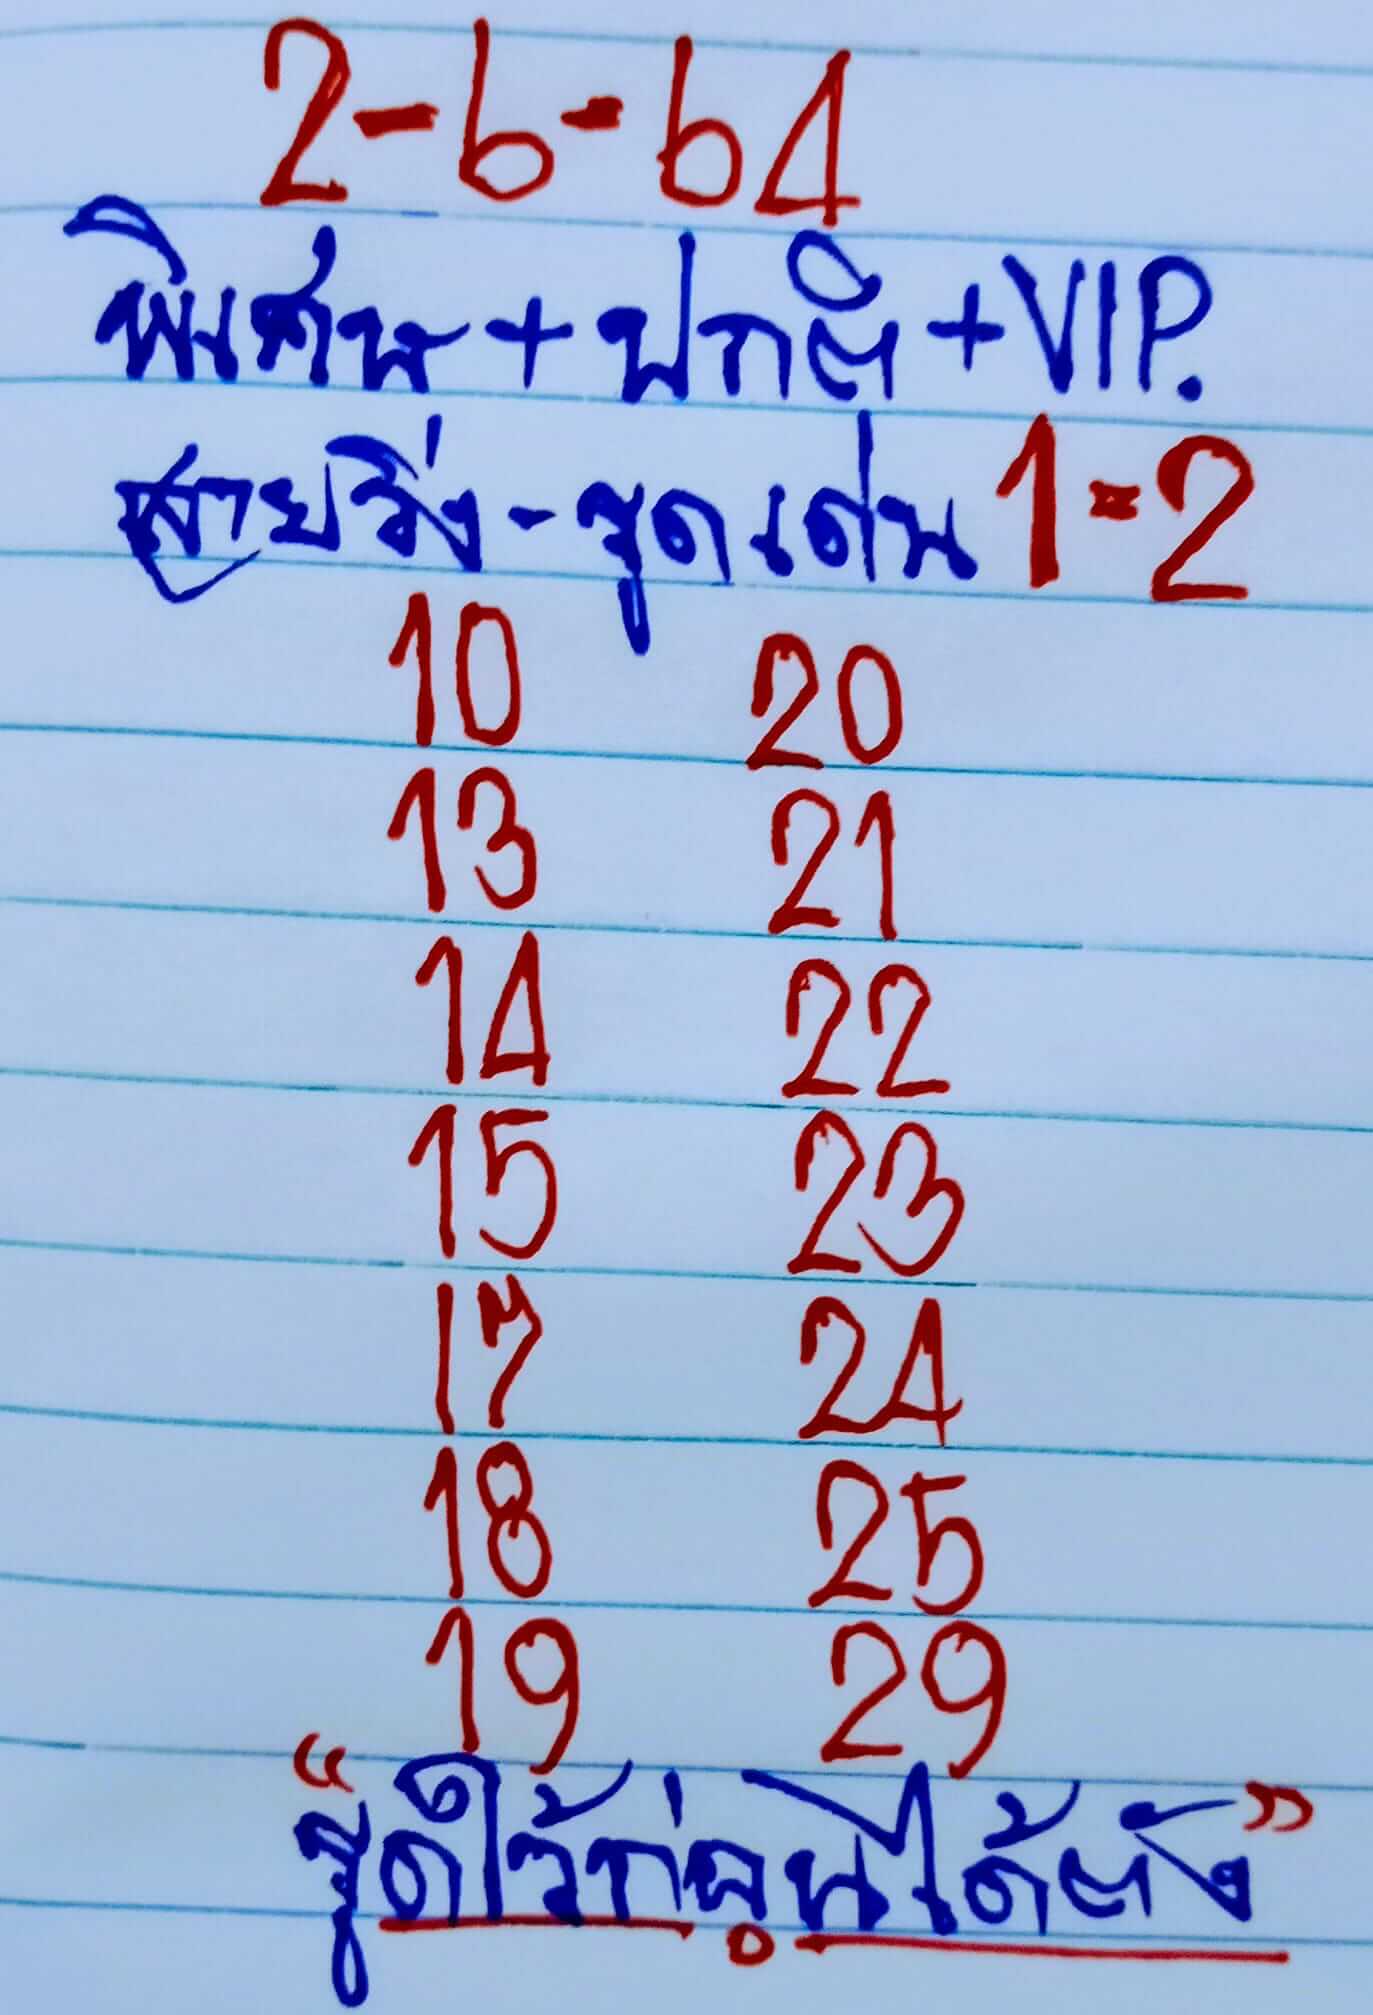 2-6-64
พิเศษ+ปกติ+VIP.
สายวิ่ง-ชุดเด่น 1=2
10 20
13 21
14 22
15 23
17 24
18 25
19 29
“ชุดไว้ก่อนได้ตัง”